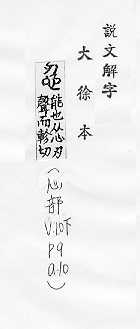 說文解字
大徐本
忍
能也从心刃
聲而軫切
(心部
V.10下
P9
a.10)